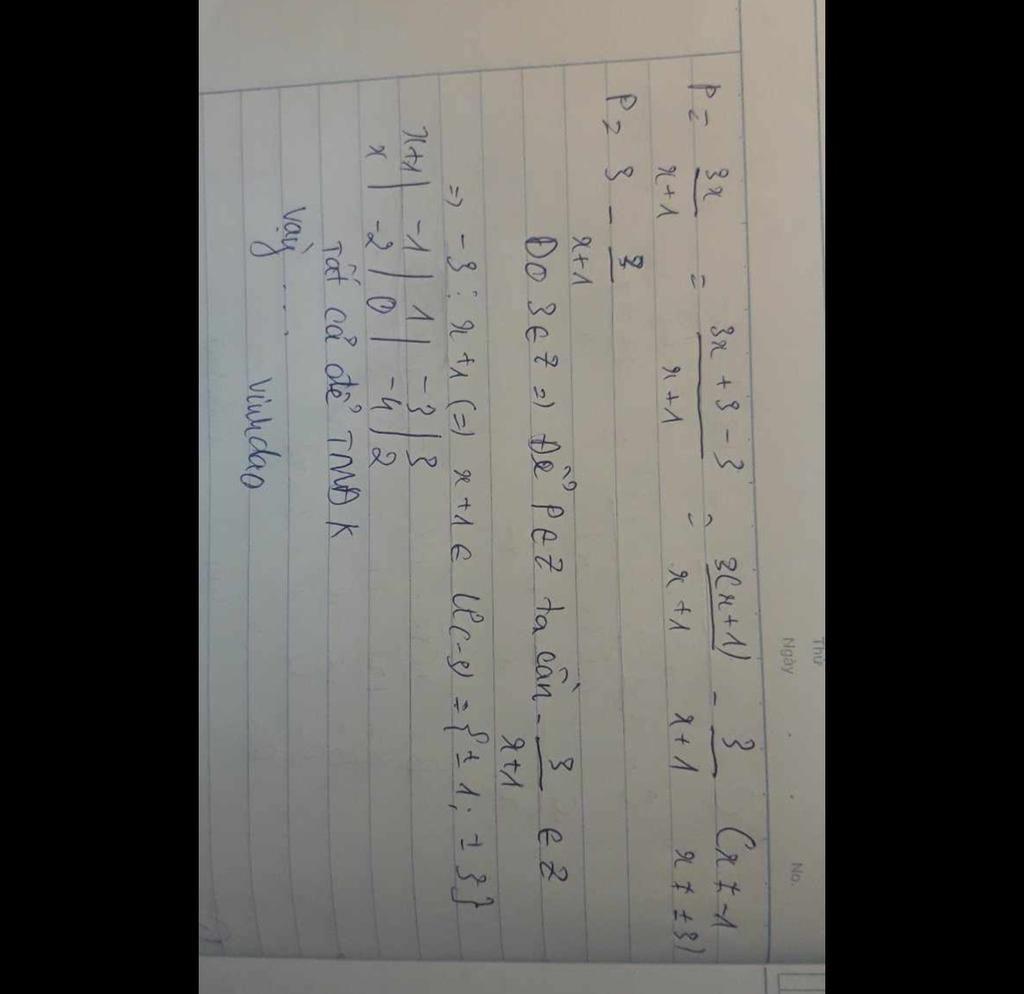 Thứ
Ngày
No.
P = 3x/x+1 = 3x+3-3/x+1 = 3(x+1)/x+1 - 3/x+1 (x ≠ -1
x ≠ ±3)
P = 3 - 3/x+1
Do 3 ∈ Z => Để P ∈ Z ta cần - 3/x+1 ∈ Z
=> -3 ⋮ x+1 (=) x+1 ∈ Ư(-3) = {±1; ±3}
x+1 | -1 | 1 | -3 | 3
x | -2 | 0 | -4 | 2
Tất cả để TMĐK
Vậy ....
Vinhdao